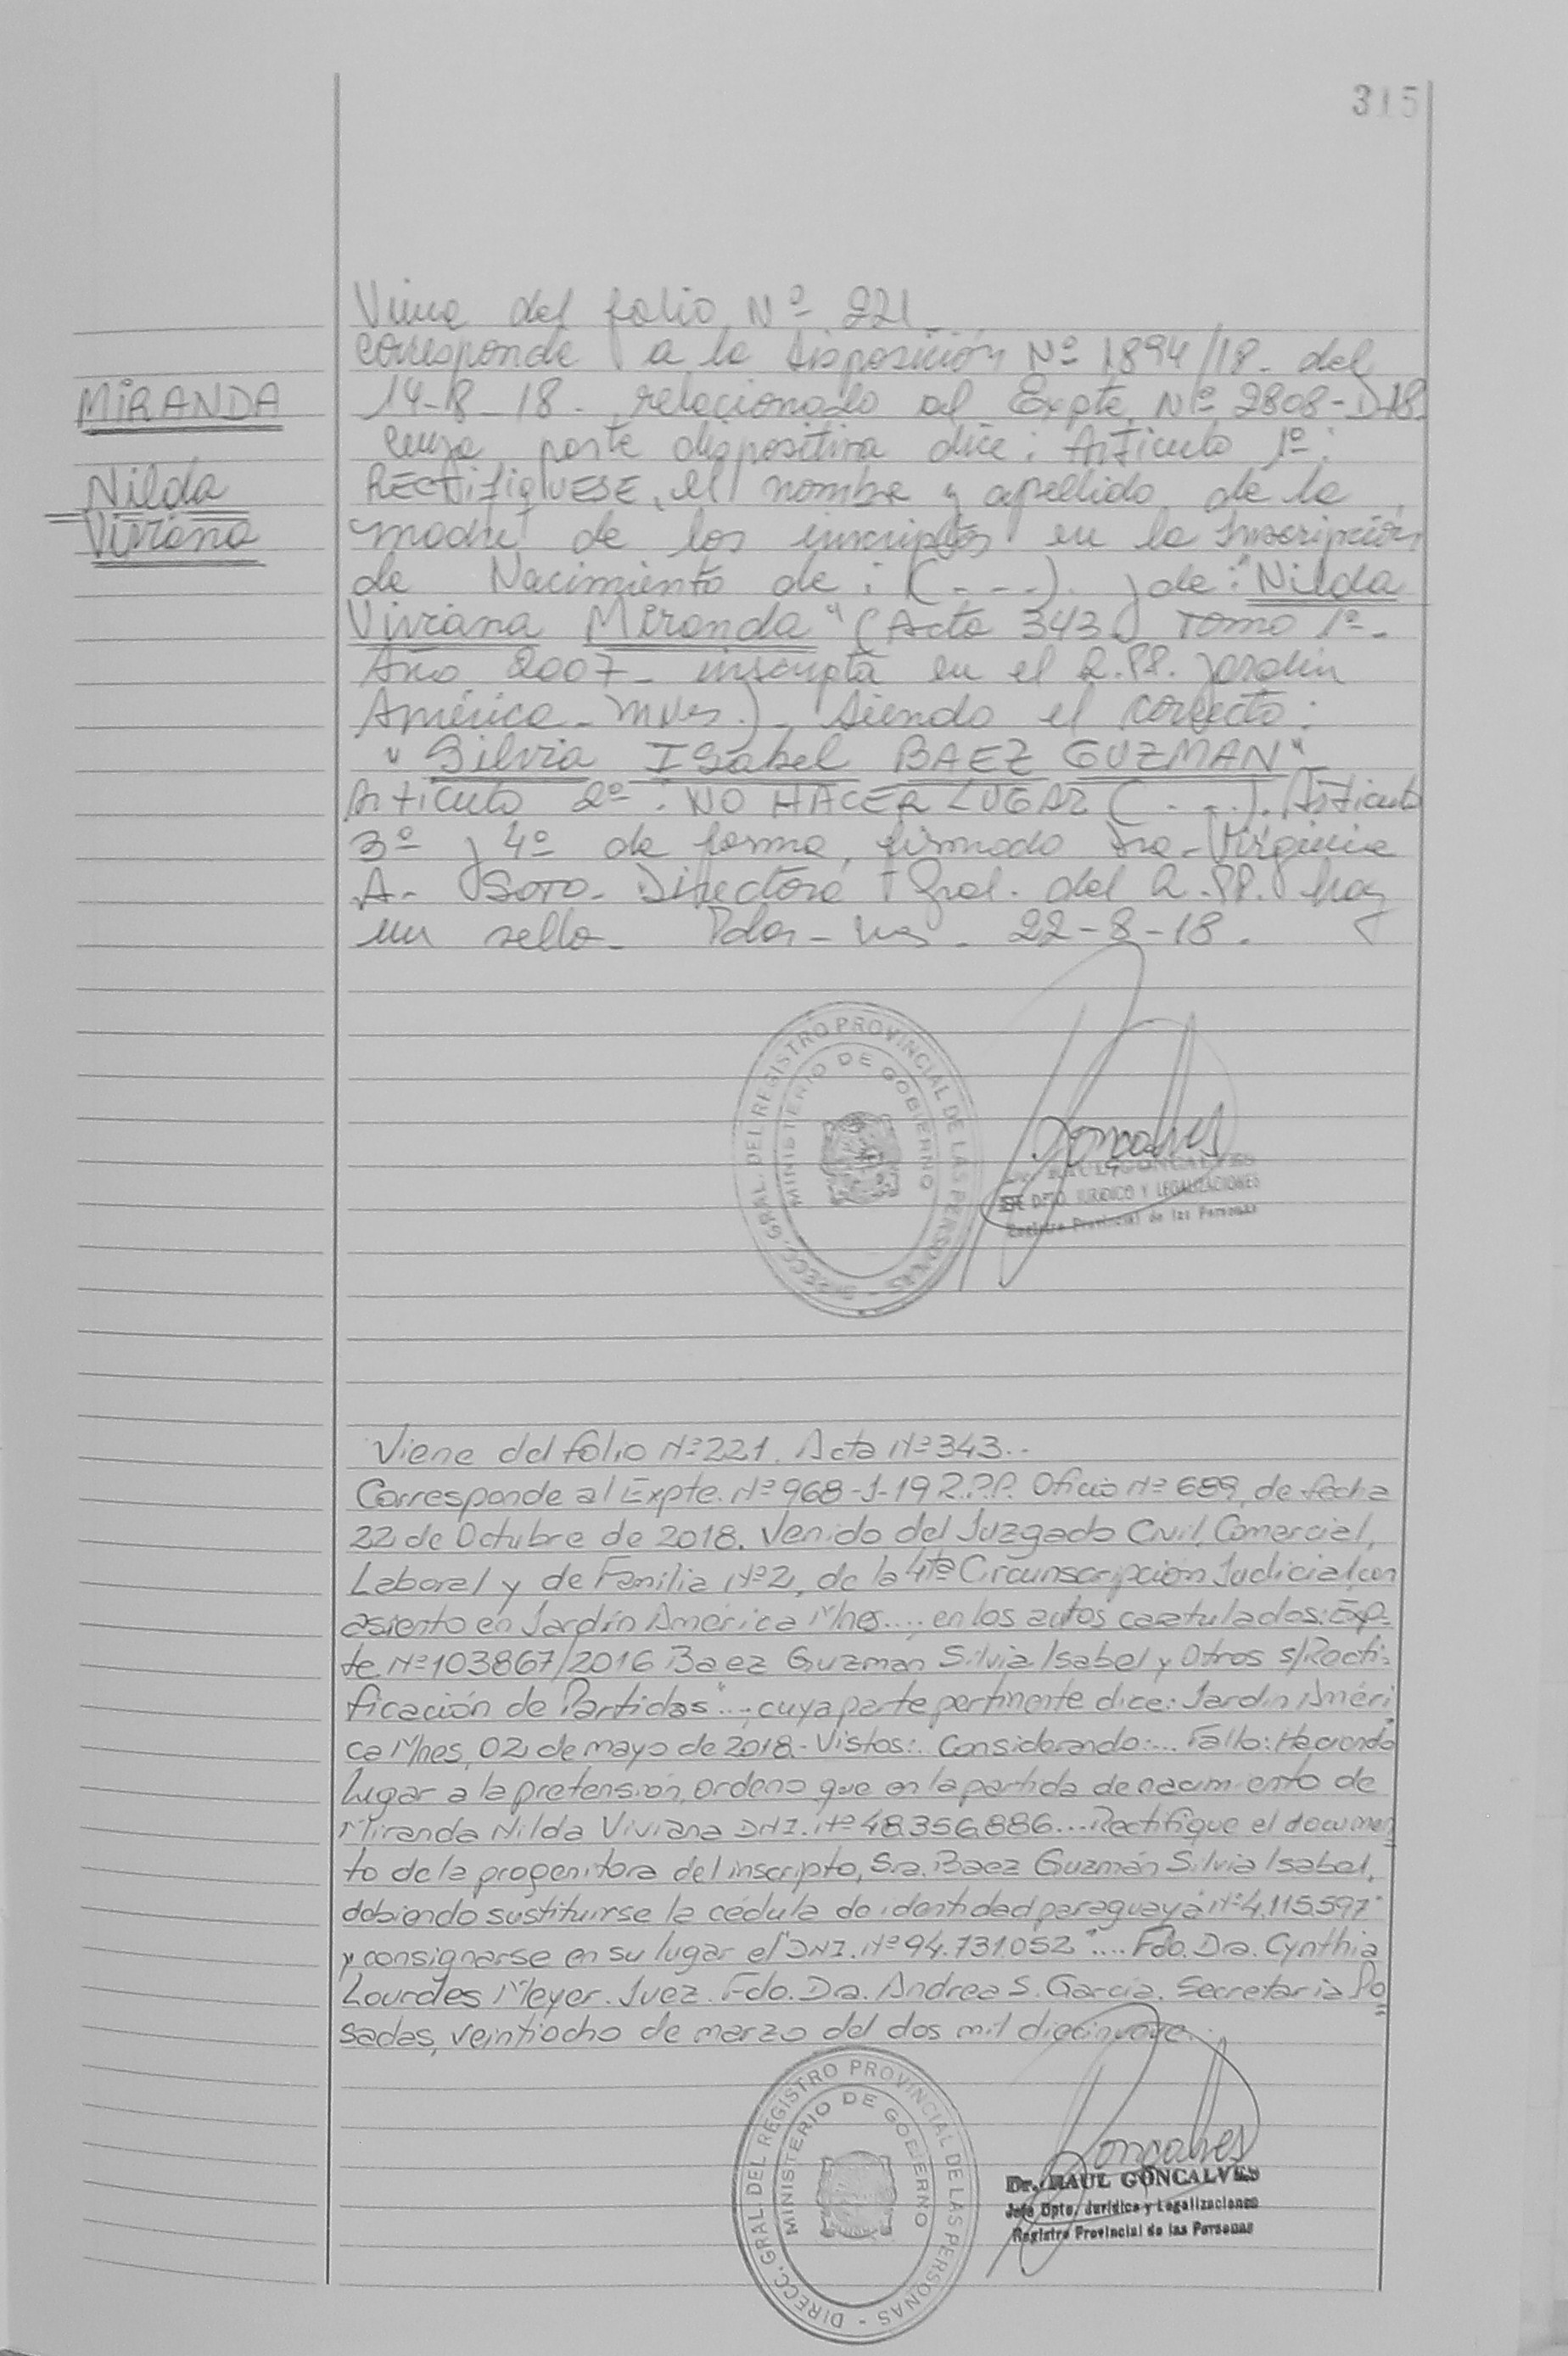 315
MIRANDA
Nilda
Viviana
Viene del folio Nº 221
corresponde a la disposición Nº 1894/18. del
14-8-18. relacionado al Expte. Nº 2808-D-18.
cuya parte dispositiva dice: Artículo 1º:
RECTIFIQUESE, el nombre y apellido de la
madre de los inscriptos en la Inscripción
de Nacimiento de: (- - -). y de: "Nilda
Viviana Miranda" (Acta 343. Tomo 1º-
Año 2007- inscripta en el R.PP. Jardín
América - Mnes.)- siendo el correcto:
"Silvia ISabel BAEZ GUZMAN"
Artículo 2º: NO HACER LUGAR (. - .). Artículo
3º y 4º de forma, firmado Dra. Virginia
A. Soto- Directora Gral. del R.PP. hay
un sello- Pdas- Mnes. 22-8-18.
DIRECC. GRAL. DEL REGISTRO PROVINCIAL DE LAS PERSONAS -
MINISTERIO DE GOBIERNO
Goncalves
Dr. RAUL GONCALVES
DPTO. JURIDICO Y LEGALIZACIONES
Registro Provincial de las Personas
Viene del folio Nº 221. Acta Nº 343..
Corresponde al Expte. Nº 968-J-19 R.P.P. Oficio Nº 689, de fecha
22 de Octubre de 2018. Venido del Juzgado Civil, Comercial,
Laboral y de Familia Nº 2, de la 4ta Circunscripción Judicial, con
asiento en Jardín América Mnes...., en los autos caratulados: Exp-
te. Nº 103867/2016 Baez Guzman Silvia Isabel y Otros s/Recti-
ficación de Partidas"..., cuya parte pertinente dice: Jardín Améri
ca Mnes, 02 de mayo de 2018.- Vistos:. Considerando:... Fallo: Haciendo
lugar a la pretensión, ordeno que en la partida de nacimiento de
Miranda Nilda Viviana DNI. Nº 48.356.886.... Rectifique el documen
to de la progenitora del inscripto, Sra. Baez Guzmán Silvia Isabel,
debiendo sustituirse la cédula de identidad paraguaya "Nº 4.115.597"
y consignarse en su lugar el "DNI. Nº 94.731.052".... Fdo. Dra. Cynthia
Lourdes Meyer. Juez. Fdo. Dra. Andrea S. García. Secretaria Po
sadas, veintiocho de marzo del dos mil diecinueve.
DIRECC. GRAL. DEL REGISTRO PROVINCIAL DE LAS PERSONAS -
MINISTERIO DE GOBIERNO
Goncalves
Dr. RAUL GONCALVES
Jefe Dpto. Jurídico y Legalizaciones
Registro Provincial de las Personas